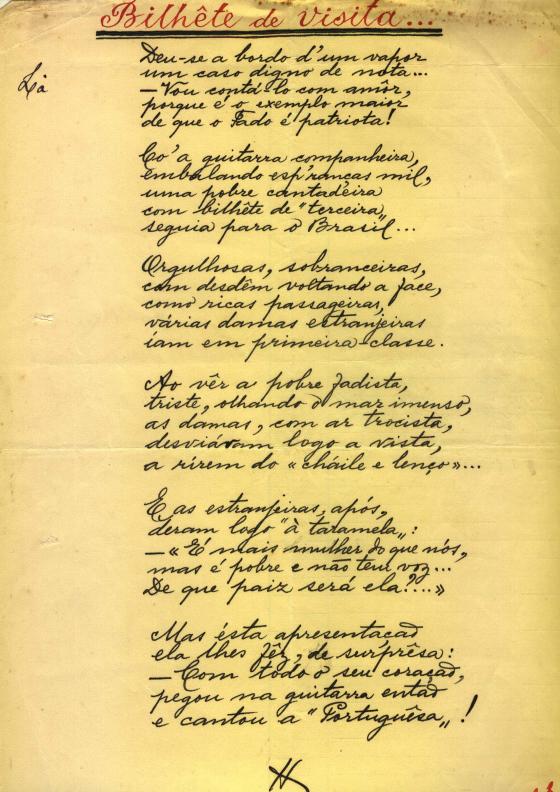 Bilhête de visita...
Lá
Deu-se a bordo d'um vapor
um caso digno de nota...
— Vou contá-lo com amôr,
porque é o exemplo maior
de que o Fado é patriota!
Co'a guitarra companheira,
embalando esp'ranças mil,
uma pobre cantadeira
com bilhête de "terceira„
seguia para o Brasil...
Orgulhosas, sobranceiras,
com desdêm voltando a face,
como ricas passageiras,
várias damas estranjeiras
iam em primeira-classe.
Ao vêr a pobre fadista,
triste, olhando o mar imenso,
as damas, com ar trocista,
desviávam logo a vista,
a rirem do «cháile e lenço»...
E as estranjeiras, após,
deram logo "à taramela„:
— «É mais mulher do que nós,
mas é pobre e não tem voz...
De que paiz será ela?...»
Mas ésta apresentação
ela lhes fêz, de surprêsa:
— Com todo o seu coração,
pegou na guitarra então
e cantou a "Portuguêsa„!